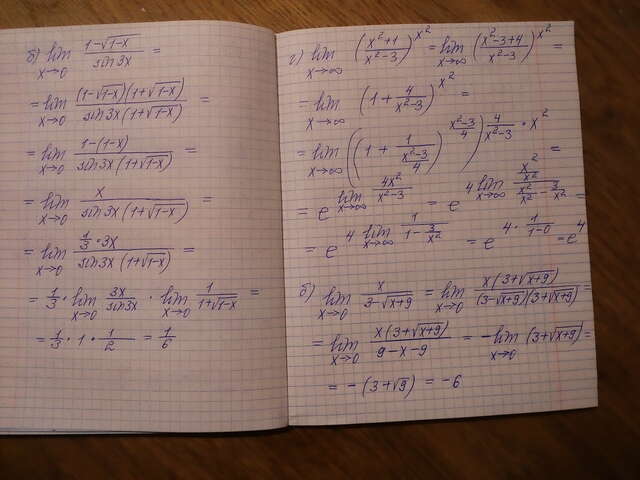 б) lim x→0 (1-√(1-x))/(sin3x) =
= lim x→0 ((1-√(1-x))(1+√(1-x)))/(sin3x(1+√(1-x))) =
= lim x→0 (1-(1-x))/(sin3x(1+√(1-x))) =
= lim x→0 x/(sin3x(1+√(1-x))) =
= lim x→0 (1/3·3x)/(sin3x(1+√(1-x))) =
= 1/3 · lim x→0 3x/sin3x · lim x→0 1/(1+√(1-x)) =
= 1/3 · 1 · 1/2 = 1/6
г) lim x→∞ ((x²+1)/(x²-3))^(x²) = lim x→∞ ((x²-3+4)/(x²-3))^(x²) =
= lim x→∞ (1 + 4/(x²-3))^(x²) =
= lim x→∞ ((1 + 1/((x²-3)/4))^((x²-3)/4))^(4/(x²-3) · x²) =
= e^(lim x→∞ 4x²/(x²-3)) = e^(4 lim x→∞ (x²/x²)/(x²/x² - 3/x²)) =
= e^(4 lim x→∞ 1/(1 - 3/x²)) = e^(4 · 1/(1-0)) = e⁴
б) lim x→0 x/(3-√(x+9)) = lim x→0 (x(3+√(x+9)))/((3-√(x+9))(3+√(x+9))) =
= lim x→0 (x(3+√(x+9)))/(9-x-9) = -lim x→0 (3+√(x+9)) =
= -(3+√9) = -6